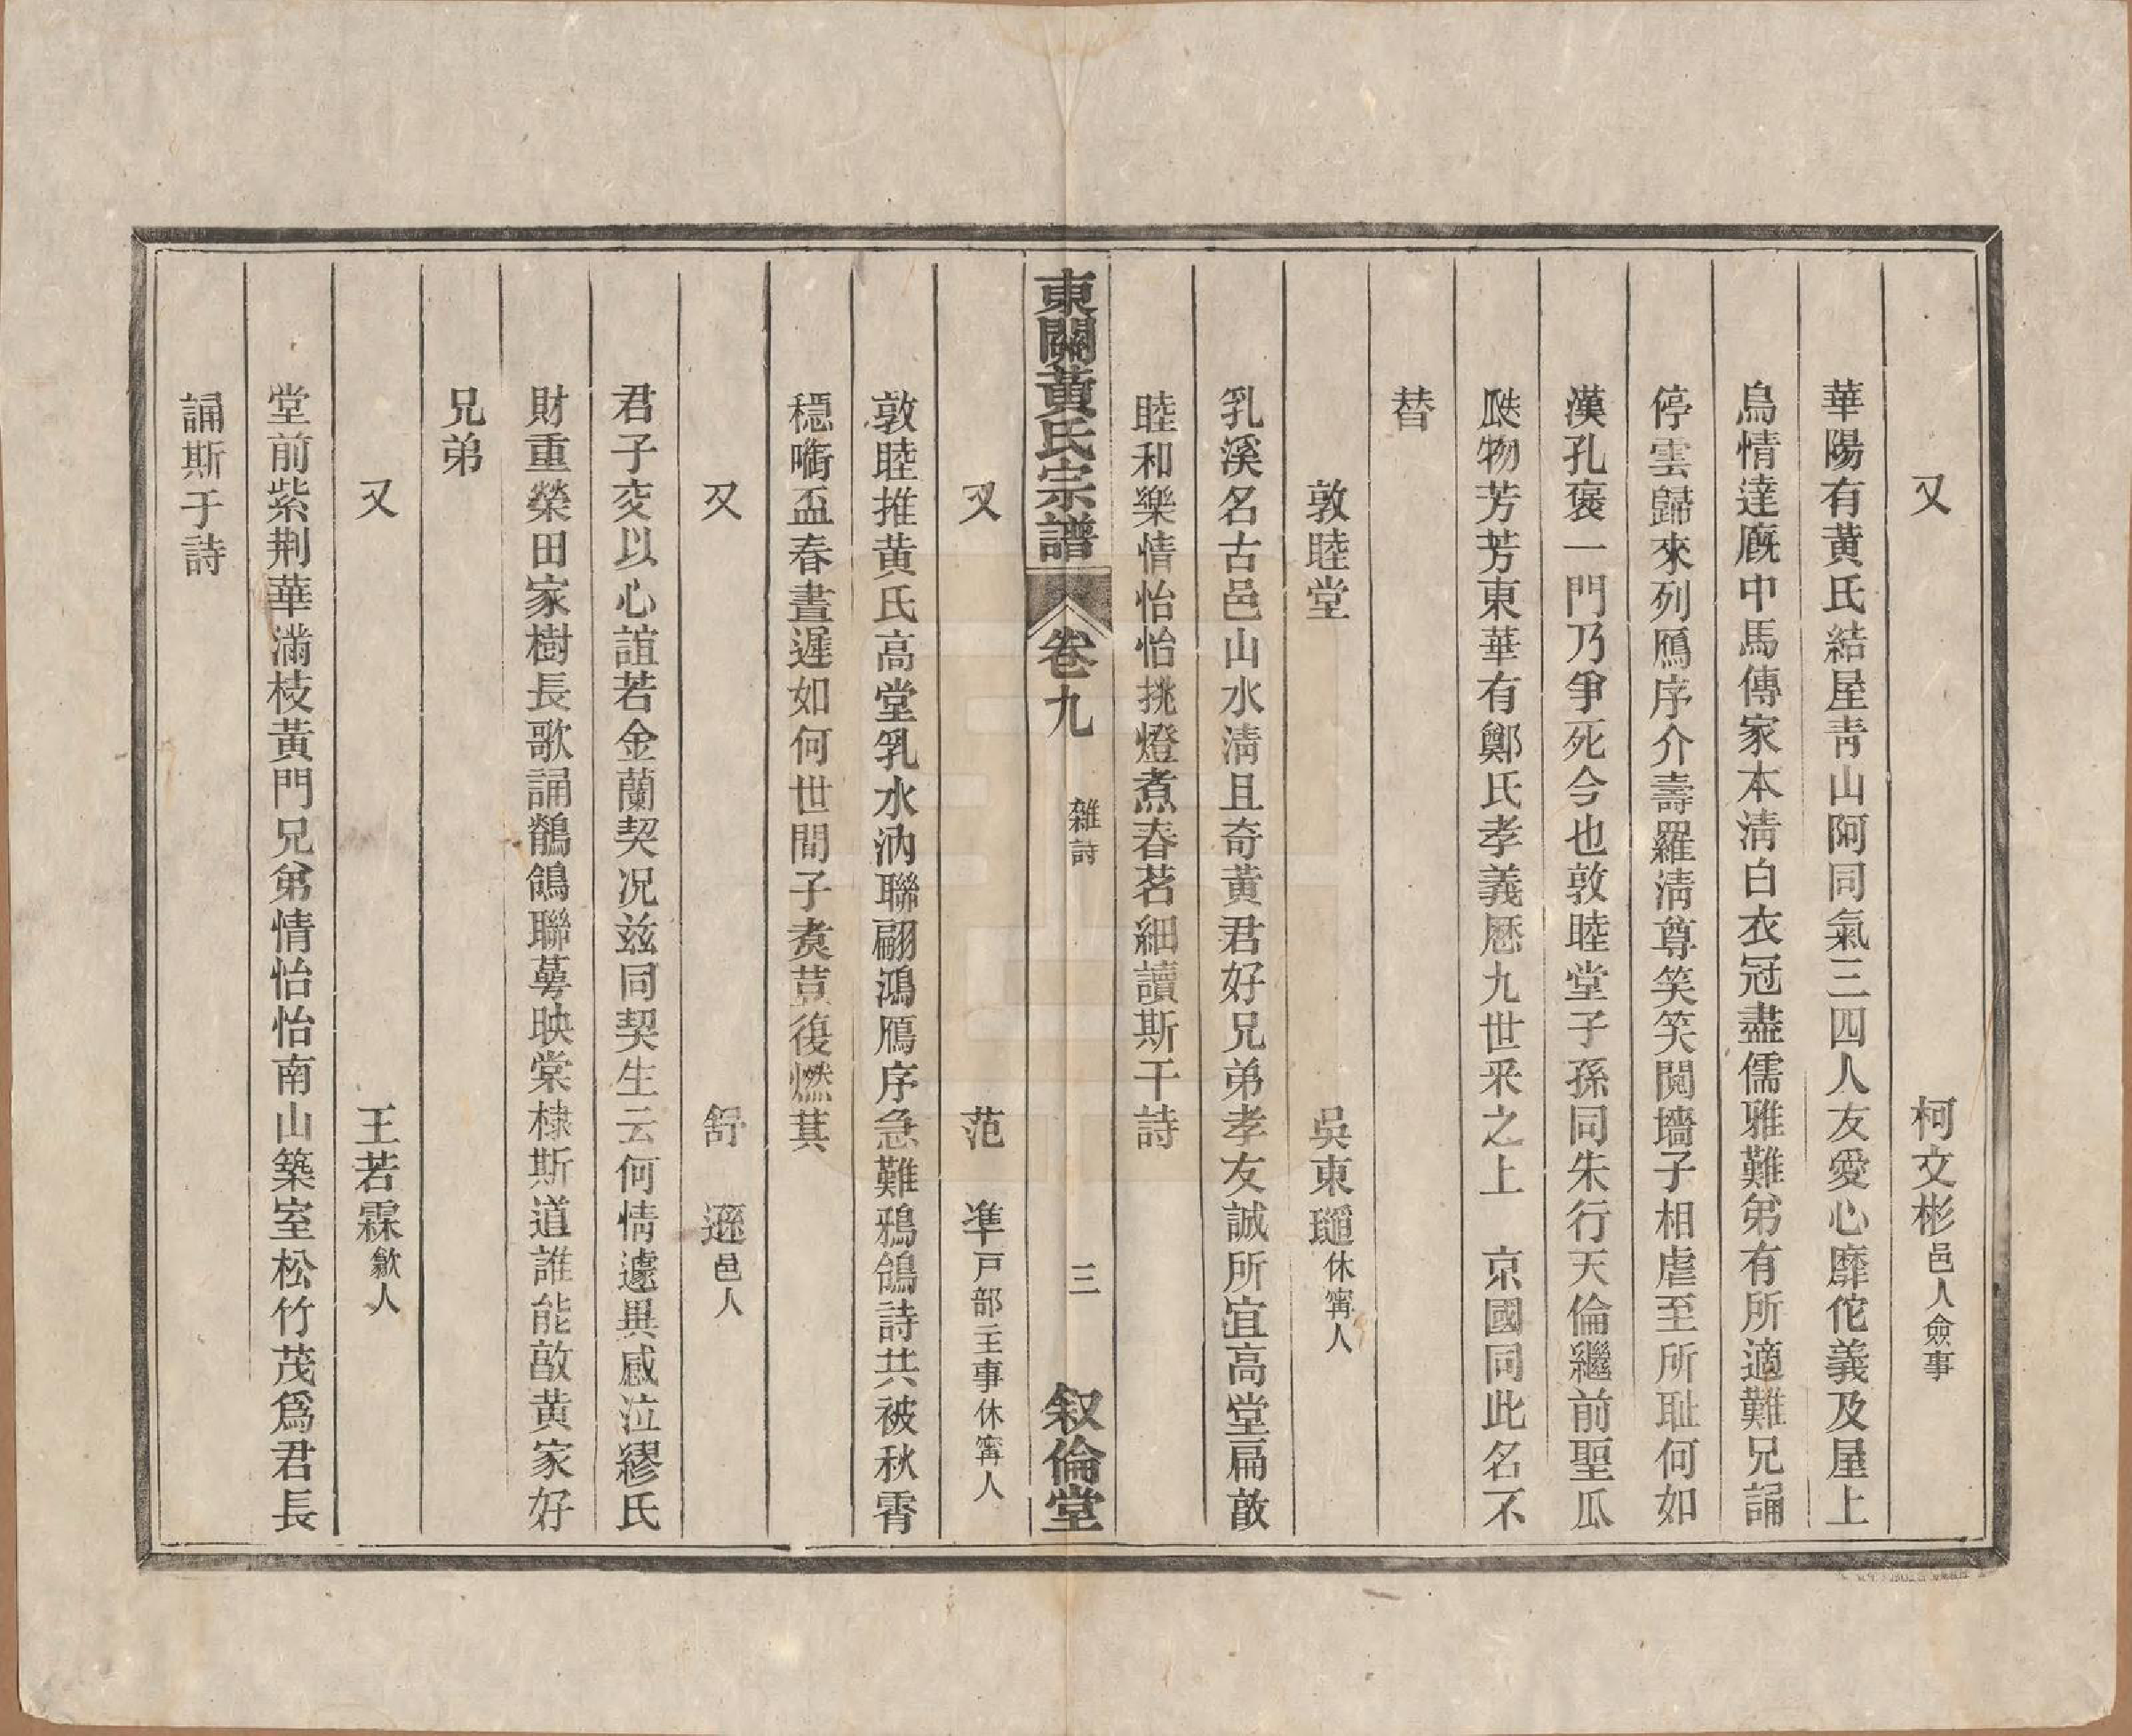 又　柯文彬邑人僉事
華陽有黃氏結屋青山阿同氣三四人友愛心靡佗義及屋上
烏情達廐中馬傳家本淸白衣冠盡儒雅難弟有所適難兄誦
停雲歸來列鴈序介壽羅淸尊笑笑鬩墻子相虐至所耻何如
漢孔褒一門乃爭死今也敦睦堂子孫同朱行天倫繼前聖瓜
瓞物芳芳東華有鄭氏孝義歷九世釆之上　京國同此名不
替
敦睦堂　吳東𤪌休寗人
乳溪名古邑山水淸且奇黃君好兄弟孝友誠所宜高堂扁敵
睦和樂情怡怡挑燈煮春茗細讀斯干詩
東關黃氏宗譜　卷九　雜詩　三　叙倫堂
又　范　凖戸部主事休寗人
敦睦推黃氏高堂乳水汭聯翩鴻鴈序急難鴉鴒詩共被秋霄
穩嘶盃春晝遲如何世間子煑荳復燃萁
又　舒　遜邑人
君子交以心誼若金蘭契况兹同契生云何情遽異感泣繆氏
財重榮田家樹長歌誦鶺鴒聯萼映棠棣斯道誰能敵黃家好
兄弟
又　王若霖歙人
堂前紫荆華滿枝黃門兄弟情怡怡南山築室松竹茂爲君長
誦斯于詩